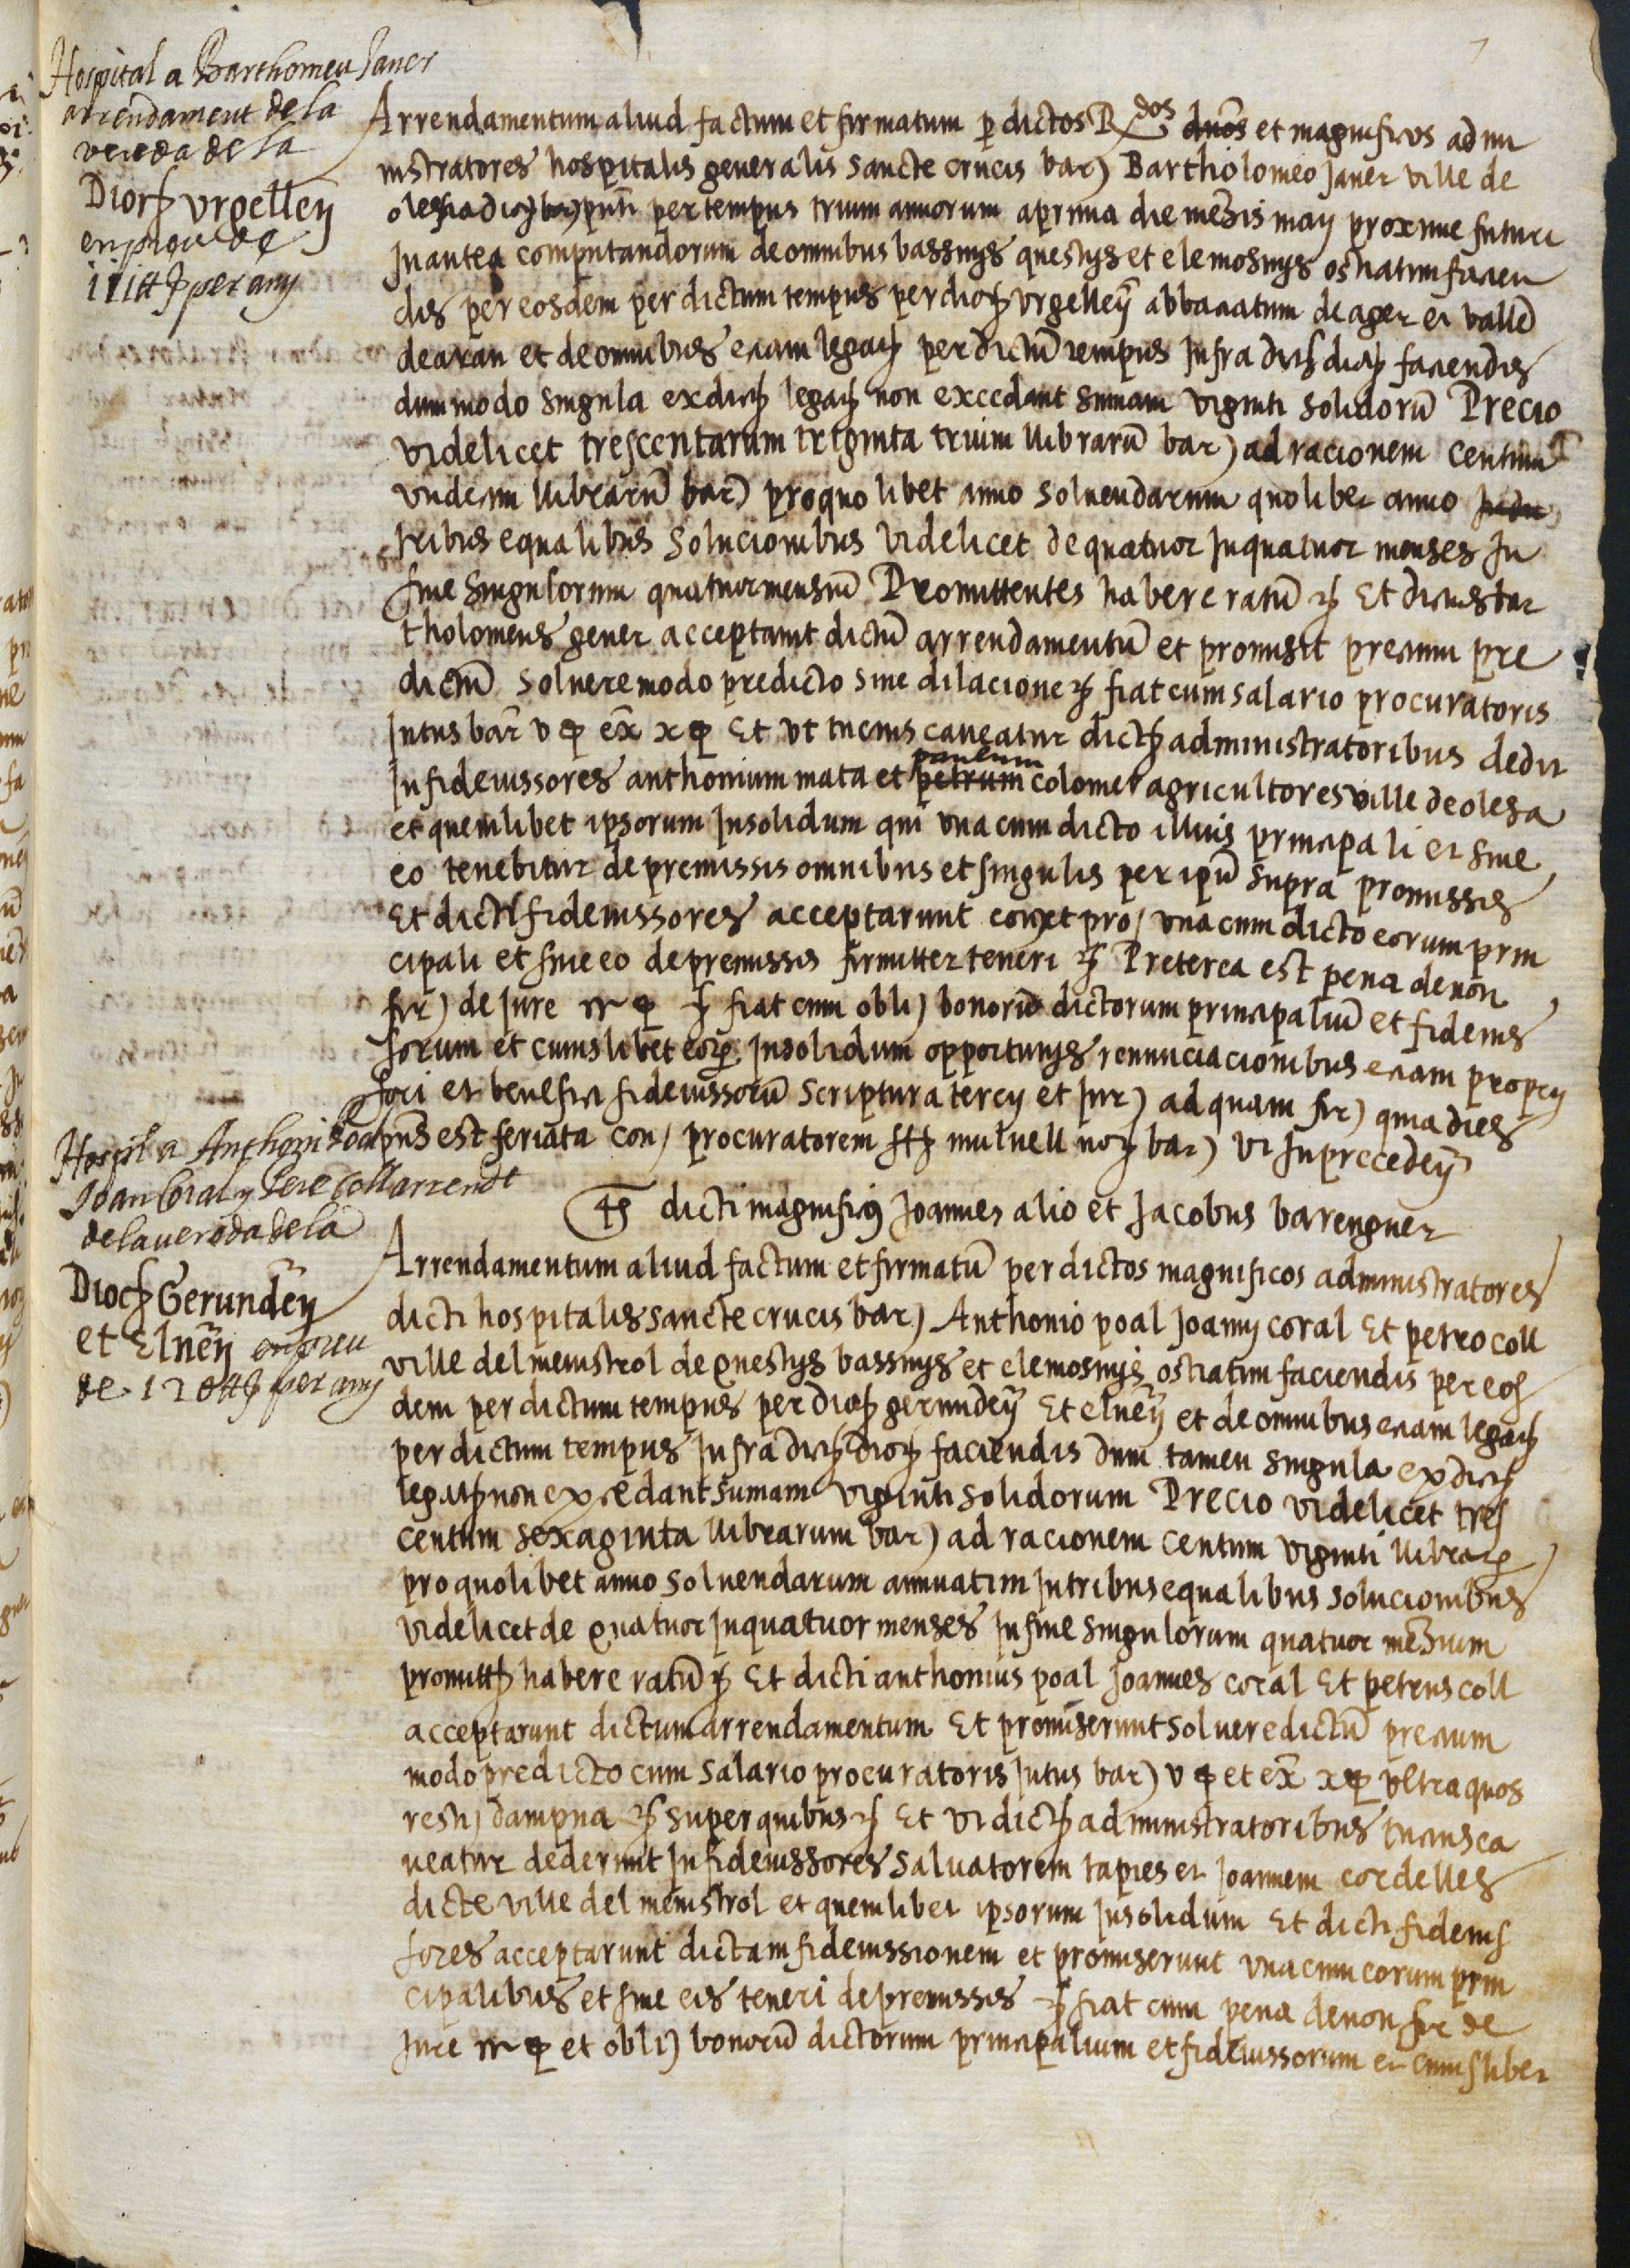 Hospital a Barthomeu Janer
arrendament de la
vereda de la
Dioc) Urgellen)
en preu de
111 ll) per any
Arrendamentum aliud factum et firmatum p dictos R.dos dnos et magnificos admi
nistratores hospitalis generalis sancte crucis bar) Bartholomeo Janer ville de
olessa dioc) bar) pnti per tempus trium annorum a prima die mensis maij proxime futuri
In antea computandorum de omnibus bassinijs questijs et elemosinijs ostiatim facien
dis per eosdem per dictum tempus per dioc) Urgellen) abbaciatum de ager et vallē
de aran et de omnibus eciam legat) per dictū tempus Infra dict) dioc) faciendis
dummodo singula ex dict) legat) non excedant sumam viginti solidorū Precio
videlicet trescentarum triginta trium llibrarū bar) ad racionem centum
undecim llibrarū bar) pro quolibet anno solvendarum quolibet anno
tribus equalibus solucionibus videlicet de quatuor In quatuor menses In
fine singulorum quatuor mensiū Promittentes habere ratū &) Et dictus bar
tholomeus gener acceptavit dictū arrendamentū et promisit precium pre
dictū solvere modo predicto sine dilacione &) fiat cum salario procuratoris
Intus bar) v ꝑ ex̄ x ꝑ Et ut tucius caveatur dict) administratoribus dedit
paulum
In fideiussores anthonium mata et petrum colomer agricultores ville de olesa
et quemlibet ipsorum Insolidum qui una cum dicto illius principali et sine
eo tenebitur de premissis omnibus et singulis per ipū supra promissis
Et dicti fideiussores acceptarunt con) et pro) una cum dicto eorum prin
cipali et sine eo de premissis firmitter teneri &) Preterea est pena de non
fir) de Jure &) fiat cum obli) bonorū dictorum principaliū et fideius
sorum et cuiuslibet eor) Insolidum opportunijs renunciacionibus eciam proprij
fori et beneficij fideiussorū scriptura tercij et Jur) ad quam fir) quia dies
pn̄s est feriata con) procuratorem mulnell not) bar) ut In preceden)
Ts dicti magnificis Joannes alio et Jacobus barenguer
Hospital a Anthoni Poal
Joan Coral y Pere Coll arrendt
de la vereda de la
Dioc) Gerunden)
et Elnen) en preu
de 120 ll) per any
Arrendamentum aliud factum et firmatū per dictos magnificos administratores
dicti hospitalis sancte crucis bar) Anthonio poal Joanij coral Et petro coll
ville del menistrol de questijs bassinijs et elemosinijs ostiatim faciendis per eos
dem per dictum tempus per dioc) gerunden) Et elnen) et de omnibus eciam legat)
per dictum tempus Infra dict) dioc) faciendis dum tamen singula ex dict)
legat) non excedant sumam viginti solidorum Precio videlicet tres
centum sexaginta llibrarum bar) ad racionem centum viginti llibrar)
pro quolibet anno solvendarum annuatim In tribus equalibus solucionibus
videlicet de quatuor In quatuor menses In fine singulorum quatuor mensium
promitt) habere ratū &) Et dicti anthonius poal Joannes coral Et petrus coll
acceptarunt dictum arrendamentum Et promiserunt solvere dictū precium
modo predicto cum salario procuratoris Intus bar) v ꝑ et ex̄ x ꝑ ultra quos
resti) dampna &) super quibus &) Et ut dict) administratoribus tucius ca
veatur dederunt In fideiussores salvatorem tapies et Joannem cordelles
dicte ville del menistrol et quemlibet ipsorum Insolidum Et dicti fideius
sores acceptarunt dictam fideiussionem et promiserunt una cum eorum prin
cipalibus et sine eis teneri de premissis &) fiat cum pena de non fir de
Jure et obli) bonorū dictorum principalium et fideiussorum et cuiuslibet